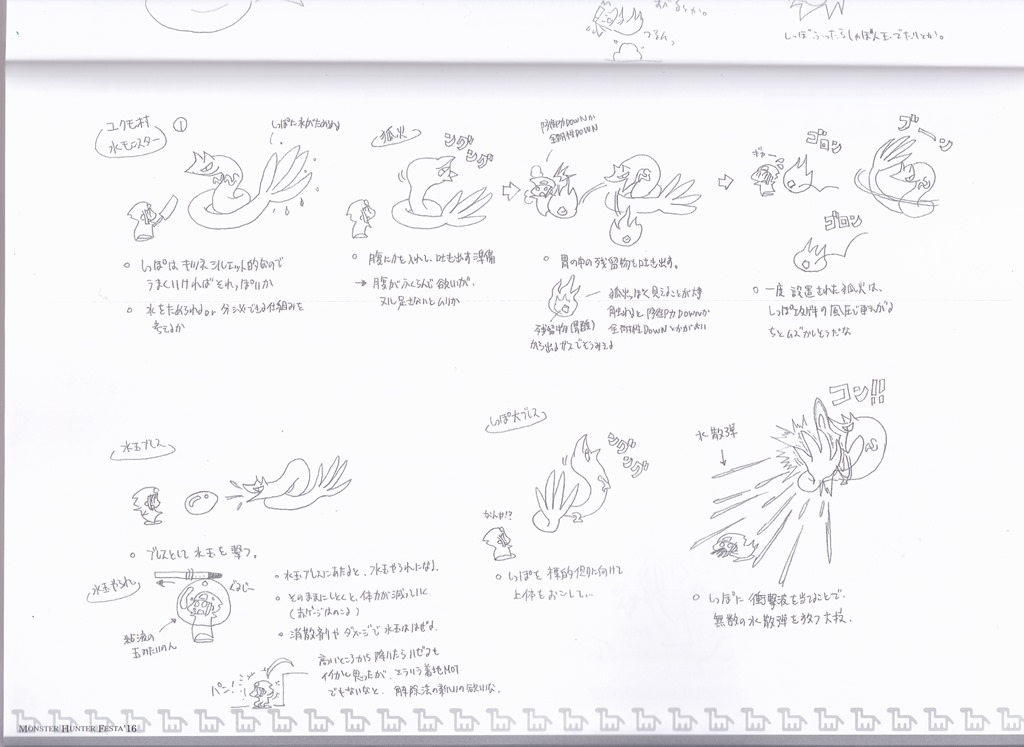 つるんっ
ユクモ村
水モンスター
①
しっぽに水がためれる
しっぽはキツネシルエット的なので
うまくいければそれっぽいか
水をためられるor分泌できる仕組みを
考えるか
狐火
ングング
腹に力を入れ、吐き出す準備
→ 腹がふくらんで欲しいが、
ヌル足さないとムリか
防御力DOWNか
全耐性DOWN
胃の中の残留物を吐き出す。
残留物(胃酸)
から出るガスでそうみえる
狐火っぽく見えることが大事
触れると防御力DOWNか
全耐性DOWNとかがよい
ギャー
ゴロン
ブーン
ゴロン
一度設置された狐火は、
しっぽ攻撃の風圧で転がる
ちとムズかしそうだな
水玉ブレス
ブレスとして水玉を撃つ。
水玉やられ
ぐるじー
粘液の
玉みたいのん
水玉ブレスにあたると、水玉やられになる。
そのままにしとくと、体力が減っていく
消散剤やダメージで水玉ははぜる。
パン!
高いところから降りたらハゼるも
イイかと思ったが、そういう着地MOT
でもないなと。解除法の新しいの欲しいな。
しっぽ大ブレス
ングング
なんや!?
しっぽを標的側に向けて
上体をおこして…
コン!!
水散弾
しっぽに衝撃波を当てることで、
無数の水散弾を放つ大技。
MONSTER HUNTER FESTA'16